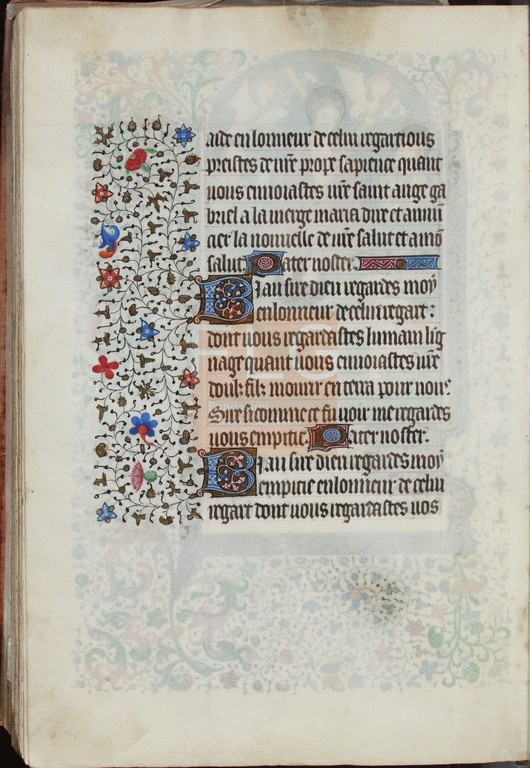 aide en lonneur de celui regart ious
preistes de vr̄e propre sapience quant
uous enuoiastes vr̄e saint ange ga
briel a la uierge maria dire et anūn
cier la nouuelle de vr̄e salut et a mō
salut. Pater noster.
Biau sire dieu regardes moy
en lonneur de celui regart :
dont uous regardastes lumain lig
nage quant uous enuoiastes vr̄e
doulz filz mourir en terra pour nous
Sire si comme ce fu uoir me regardes
uous en pitie. Pater noster.
Biau sire dieu regardes moy
en pitie en lonneur de celui
regart dont uous regardastes uos